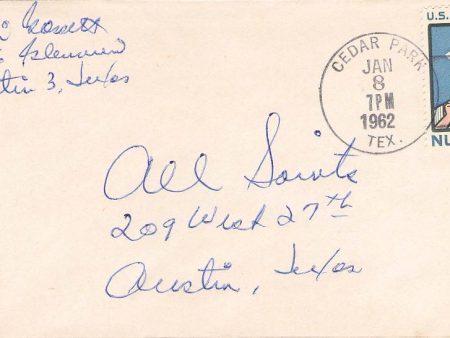 Gossett
Glenview
tin 3, Texas
U.S.
CEDAR PARK
JAN
8
7PM
1962
TEX.
NU
All Saints
209 West 27th
Austin, Texas